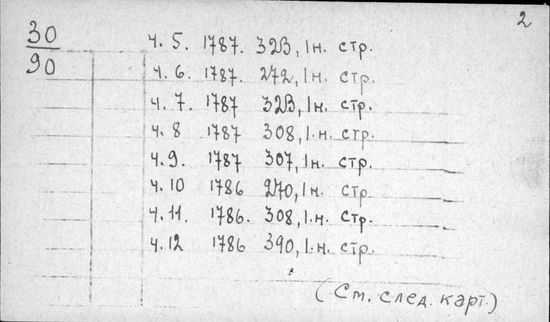 2
30
90
ч. 5. 1787. 323, 1 н. стр.
ч. 6. 1787. 272, 1 н. стр.
ч. 7. 1787 323, 1 н. стр.
ч. 8 1787 308, 1. н. стр.
ч. 9. 1787 307, 1 н. стр.
ч. 10 1786 270, 1 н. стр.
ч. 11. 1786. 308, 1. н. стр.
ч. 12 1786 390, 1. н. стр.
(См. след. карт.)